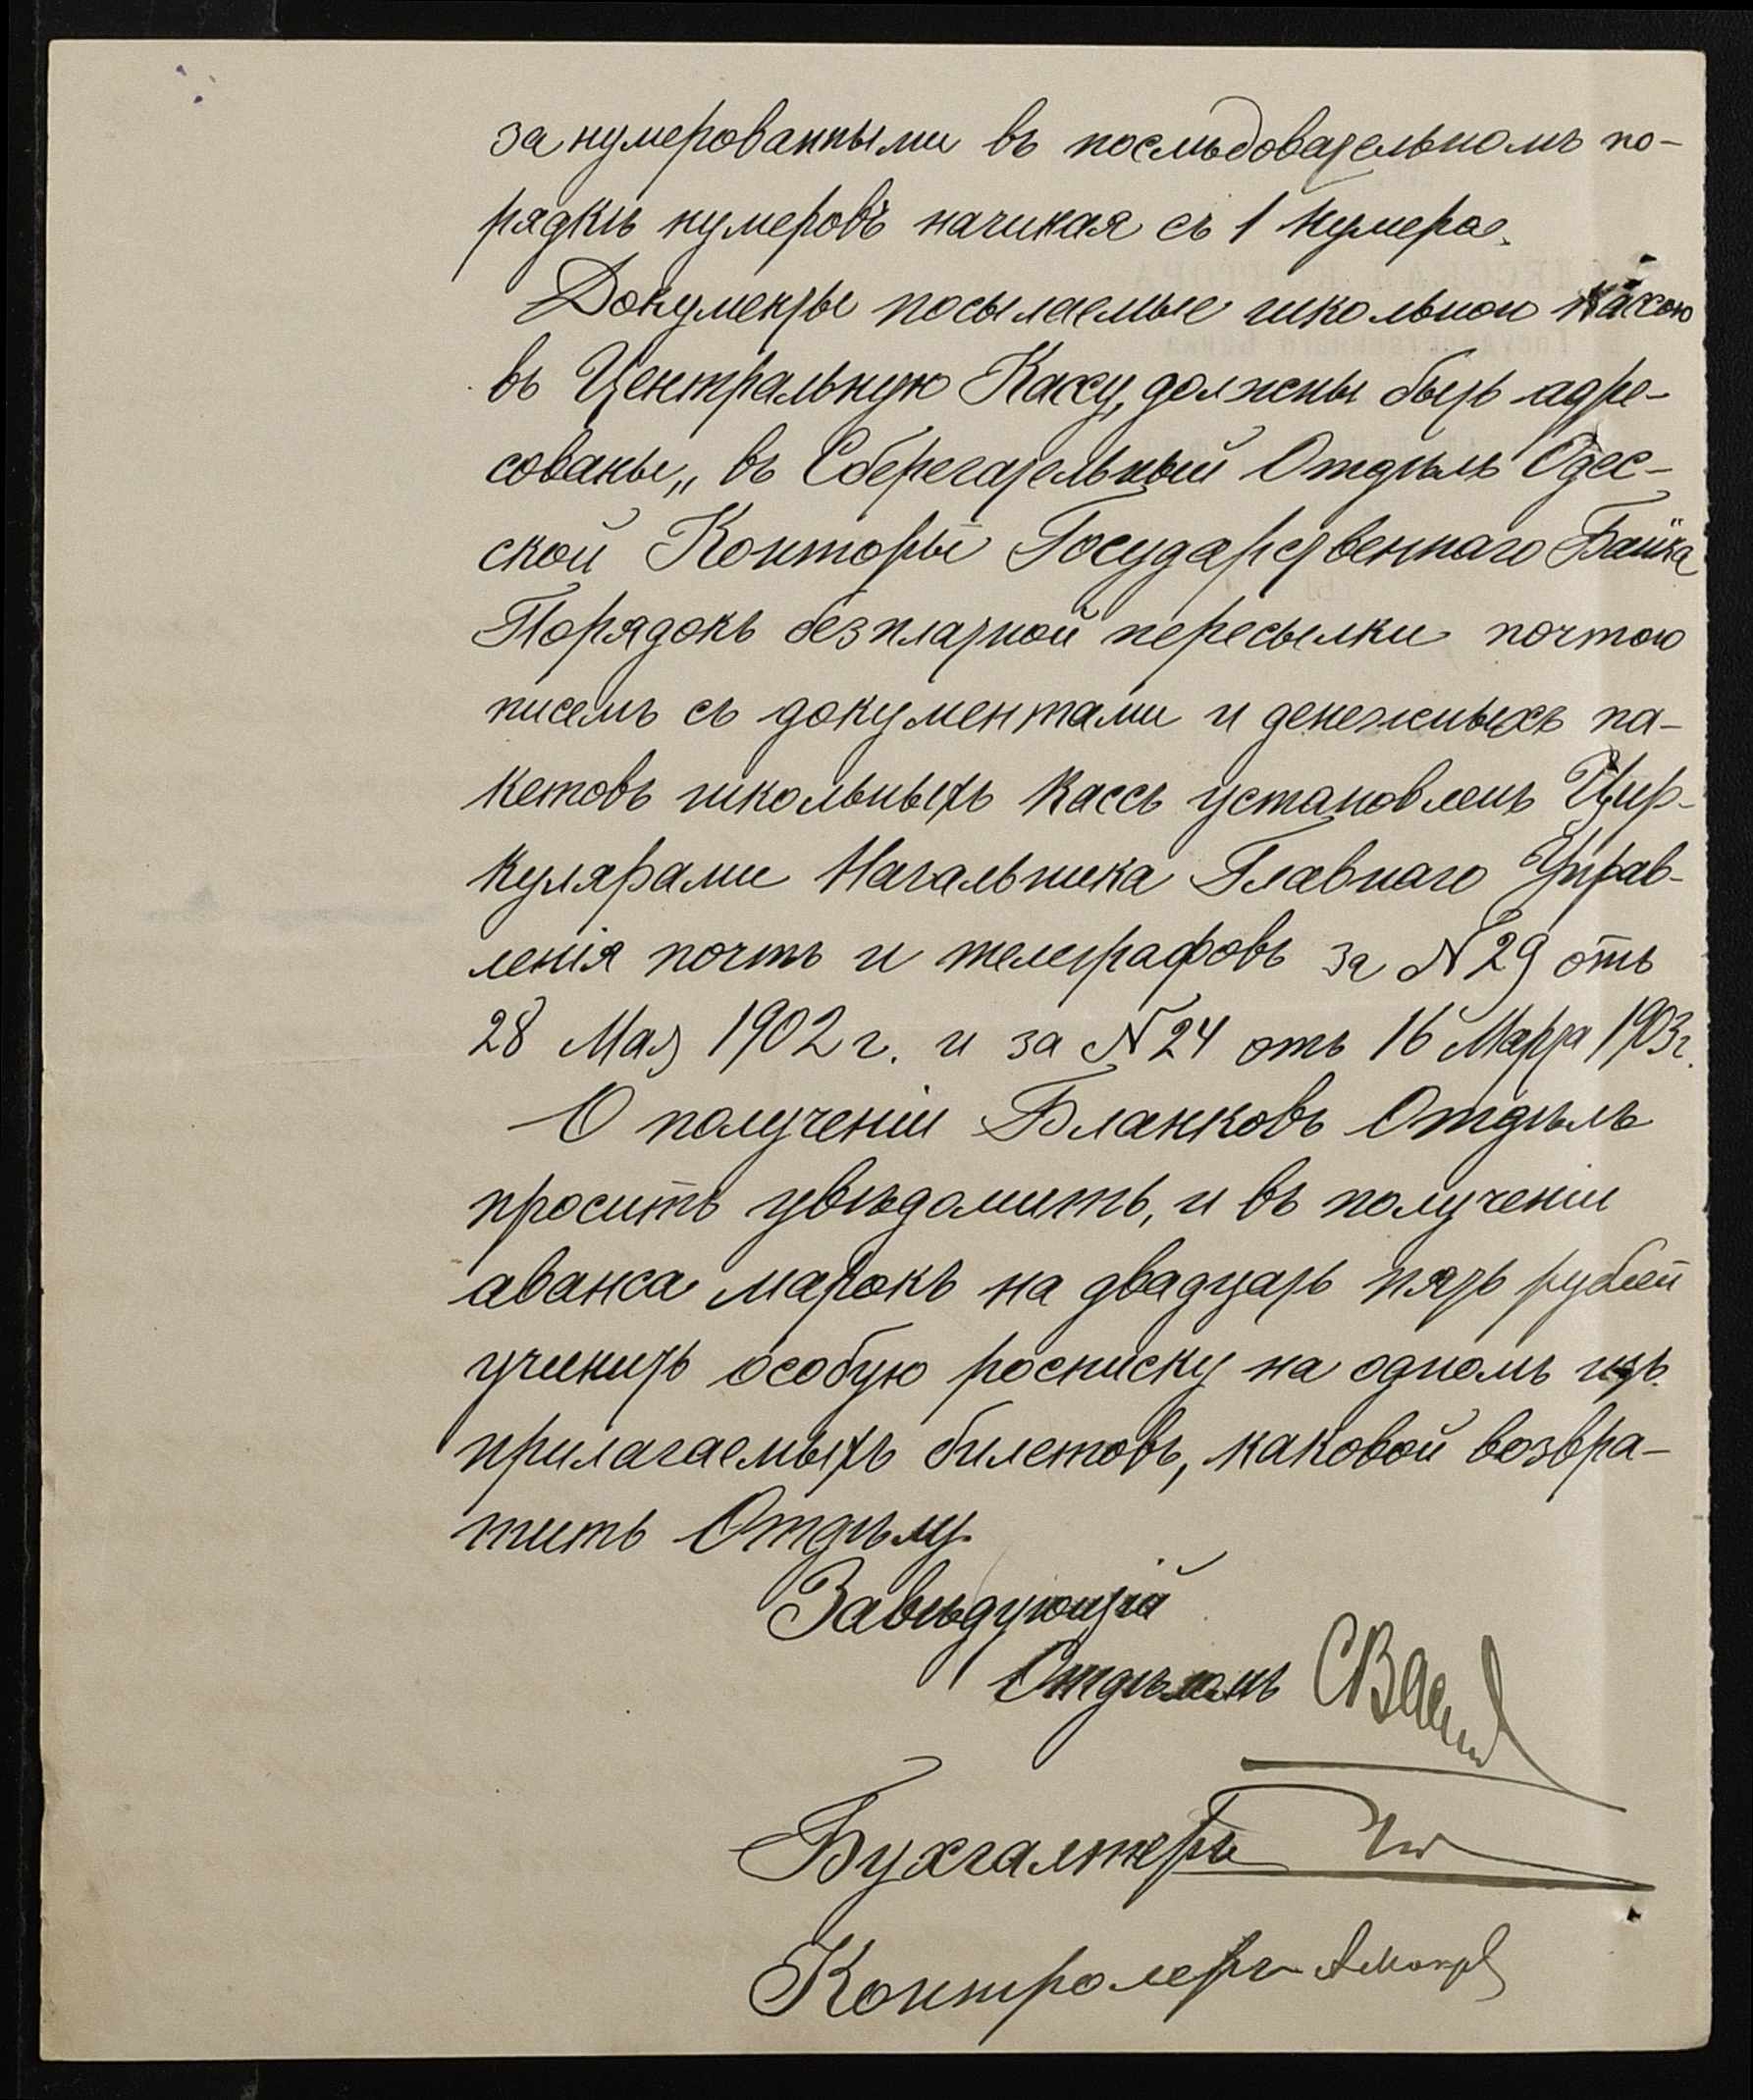 занумерованными въ послѣдовательномъ по-
рядкѣ нумеровъ начиная съ 1 нумера.
Документы посылаемые школьною кассою
въ Центральную Кассу, должны быть адре-
сованы „въ Сберегательный Отдѣлъ Одес-
ской Конторы Государственнаго Банка"
Порядокъ безплатной пересылки почтою
писемъ съ документами и денежныхъ па-
кетовъ школьныхъ кассъ установленъ Цир-
кулярами Начальника Главнаго Управ-
ленія почтъ и телеграфовъ за № 29 отъ
28 Мая 1902 г. и за № 24 отъ 16 Марта 1903 г.
О полученіи Бланковъ Отдѣлъ
проситъ увѣдомить, и въ полученіи
аванса марокъ на двадцать пять рублей
учинить особую росписку на одномъ изъ
прилагаемыхъ билетовъ, каковой возвра-
тить Отдѣлу.
Завѣдующій
Отдѣломъ
Бухгалтеръ
Контролеръ